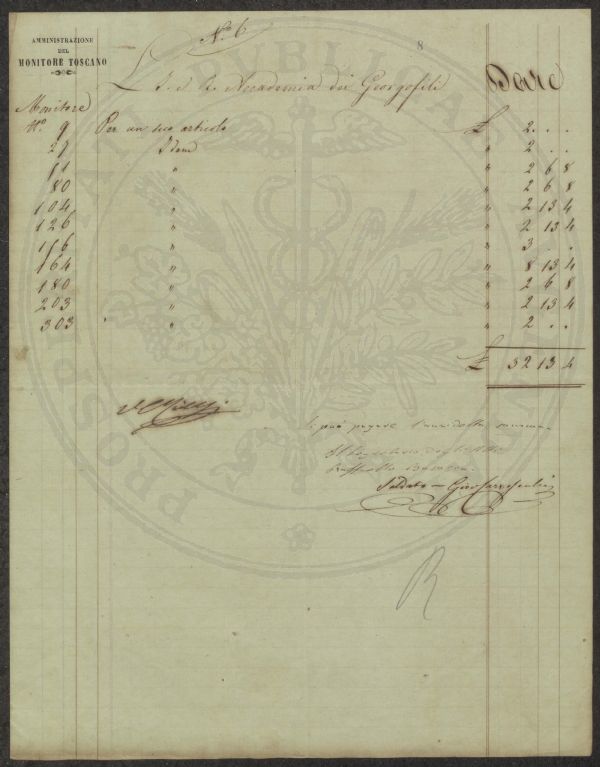 Nº 6
8
AMMINISTRAZIONE
DEL
MONITORE TOSCANO
L I. e R. Accademia dei Georgofili Dare
Monitore
Nº. 9 Per un suo articolo £ 2. . .
27 Idem " 2 . .
51 " " 2 6 8
80 " " 2 6 8
104 " " 2 13 4
126 " " 2 13 4
156 " " 3 . .
164 " " 8 13 4
180 " " 2 6 8
203 " " 2 13 4
303 " " 2 . .
£ 32 13 4
Si può pagare
Saldato
R
PROSPERITATI PUBLICAE